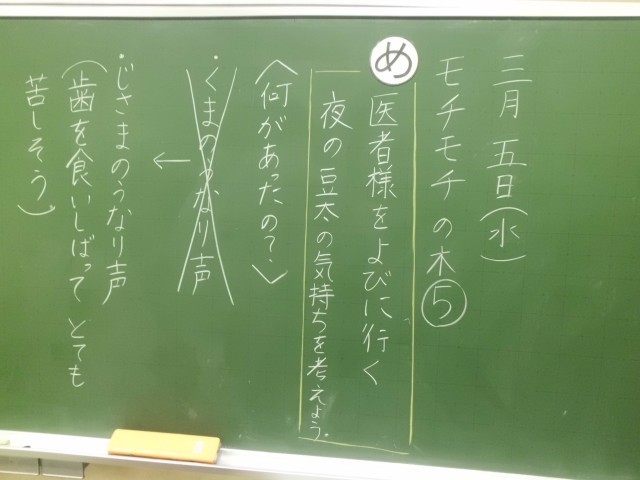 三月五日(水)
モチモチの木⑤
め
医者様をよびに行く
夜の豆太の気持ちを考えよう。
〈何があったの?〉
・くまのうなり声
←
・じさまのうなり声
(歯を食いしばって とても
苦しそう)